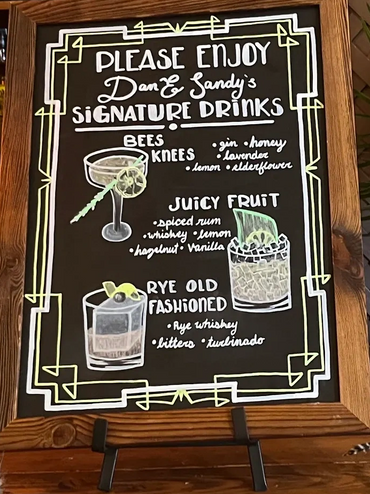 PLEASE ENJOY
Dan & Sandy's
SIGNATURE DRINKS
BEES KNEES
• gin • honey
• lavender
• lemon • elderflower
JUICY FRUIT
• spiced rum
• whiskey • lemon
• hazelnut • vanilla
RYE OLD FASHIONED
• Rye whiskey
• bitters • turbinado